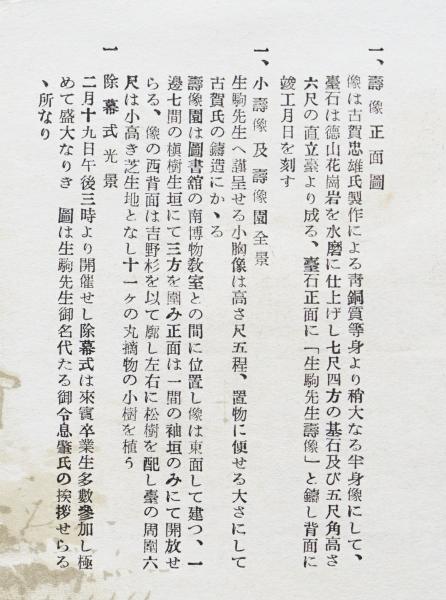 一、壽像正面圖
像は古賀忠雄氏製作による靑銅質等身より稍大なる半身像にして、
臺石は德山花崗岩を水磨に仕上げし七尺四方の基石及び五尺角高さ
六尺の直立臺より成る、臺石正面に「生駒先生壽像」と鑄し背面に
竣工月日を刻す
一、小壽像及壽像園全景
生駒先生へ謹呈せる小胸像は高さ尺五程、置物に便せる大さにして
古賀氏の鑄造にかゝる
壽像園は圖書館の南博物敎室との間に位置し像は東面して建つ、一
邊七間の槇樹生垣にて三方を圍み正面は一間の袖垣のみにて開放せ
らる、像の西背面は吉野杉を以て廓し左右に松樹を配し臺の周圍六
尺は小高き芝生地となし十一ヶの丸摘物の小樹を植う
一 除幕式光景
二月十九日午後三時より開催せし除幕式は來賓卒業生多數參加し極
めて盛大なりき 圖は生駒先生御名代たる御令息肇氏の挨拶せらる
ゝ所なり